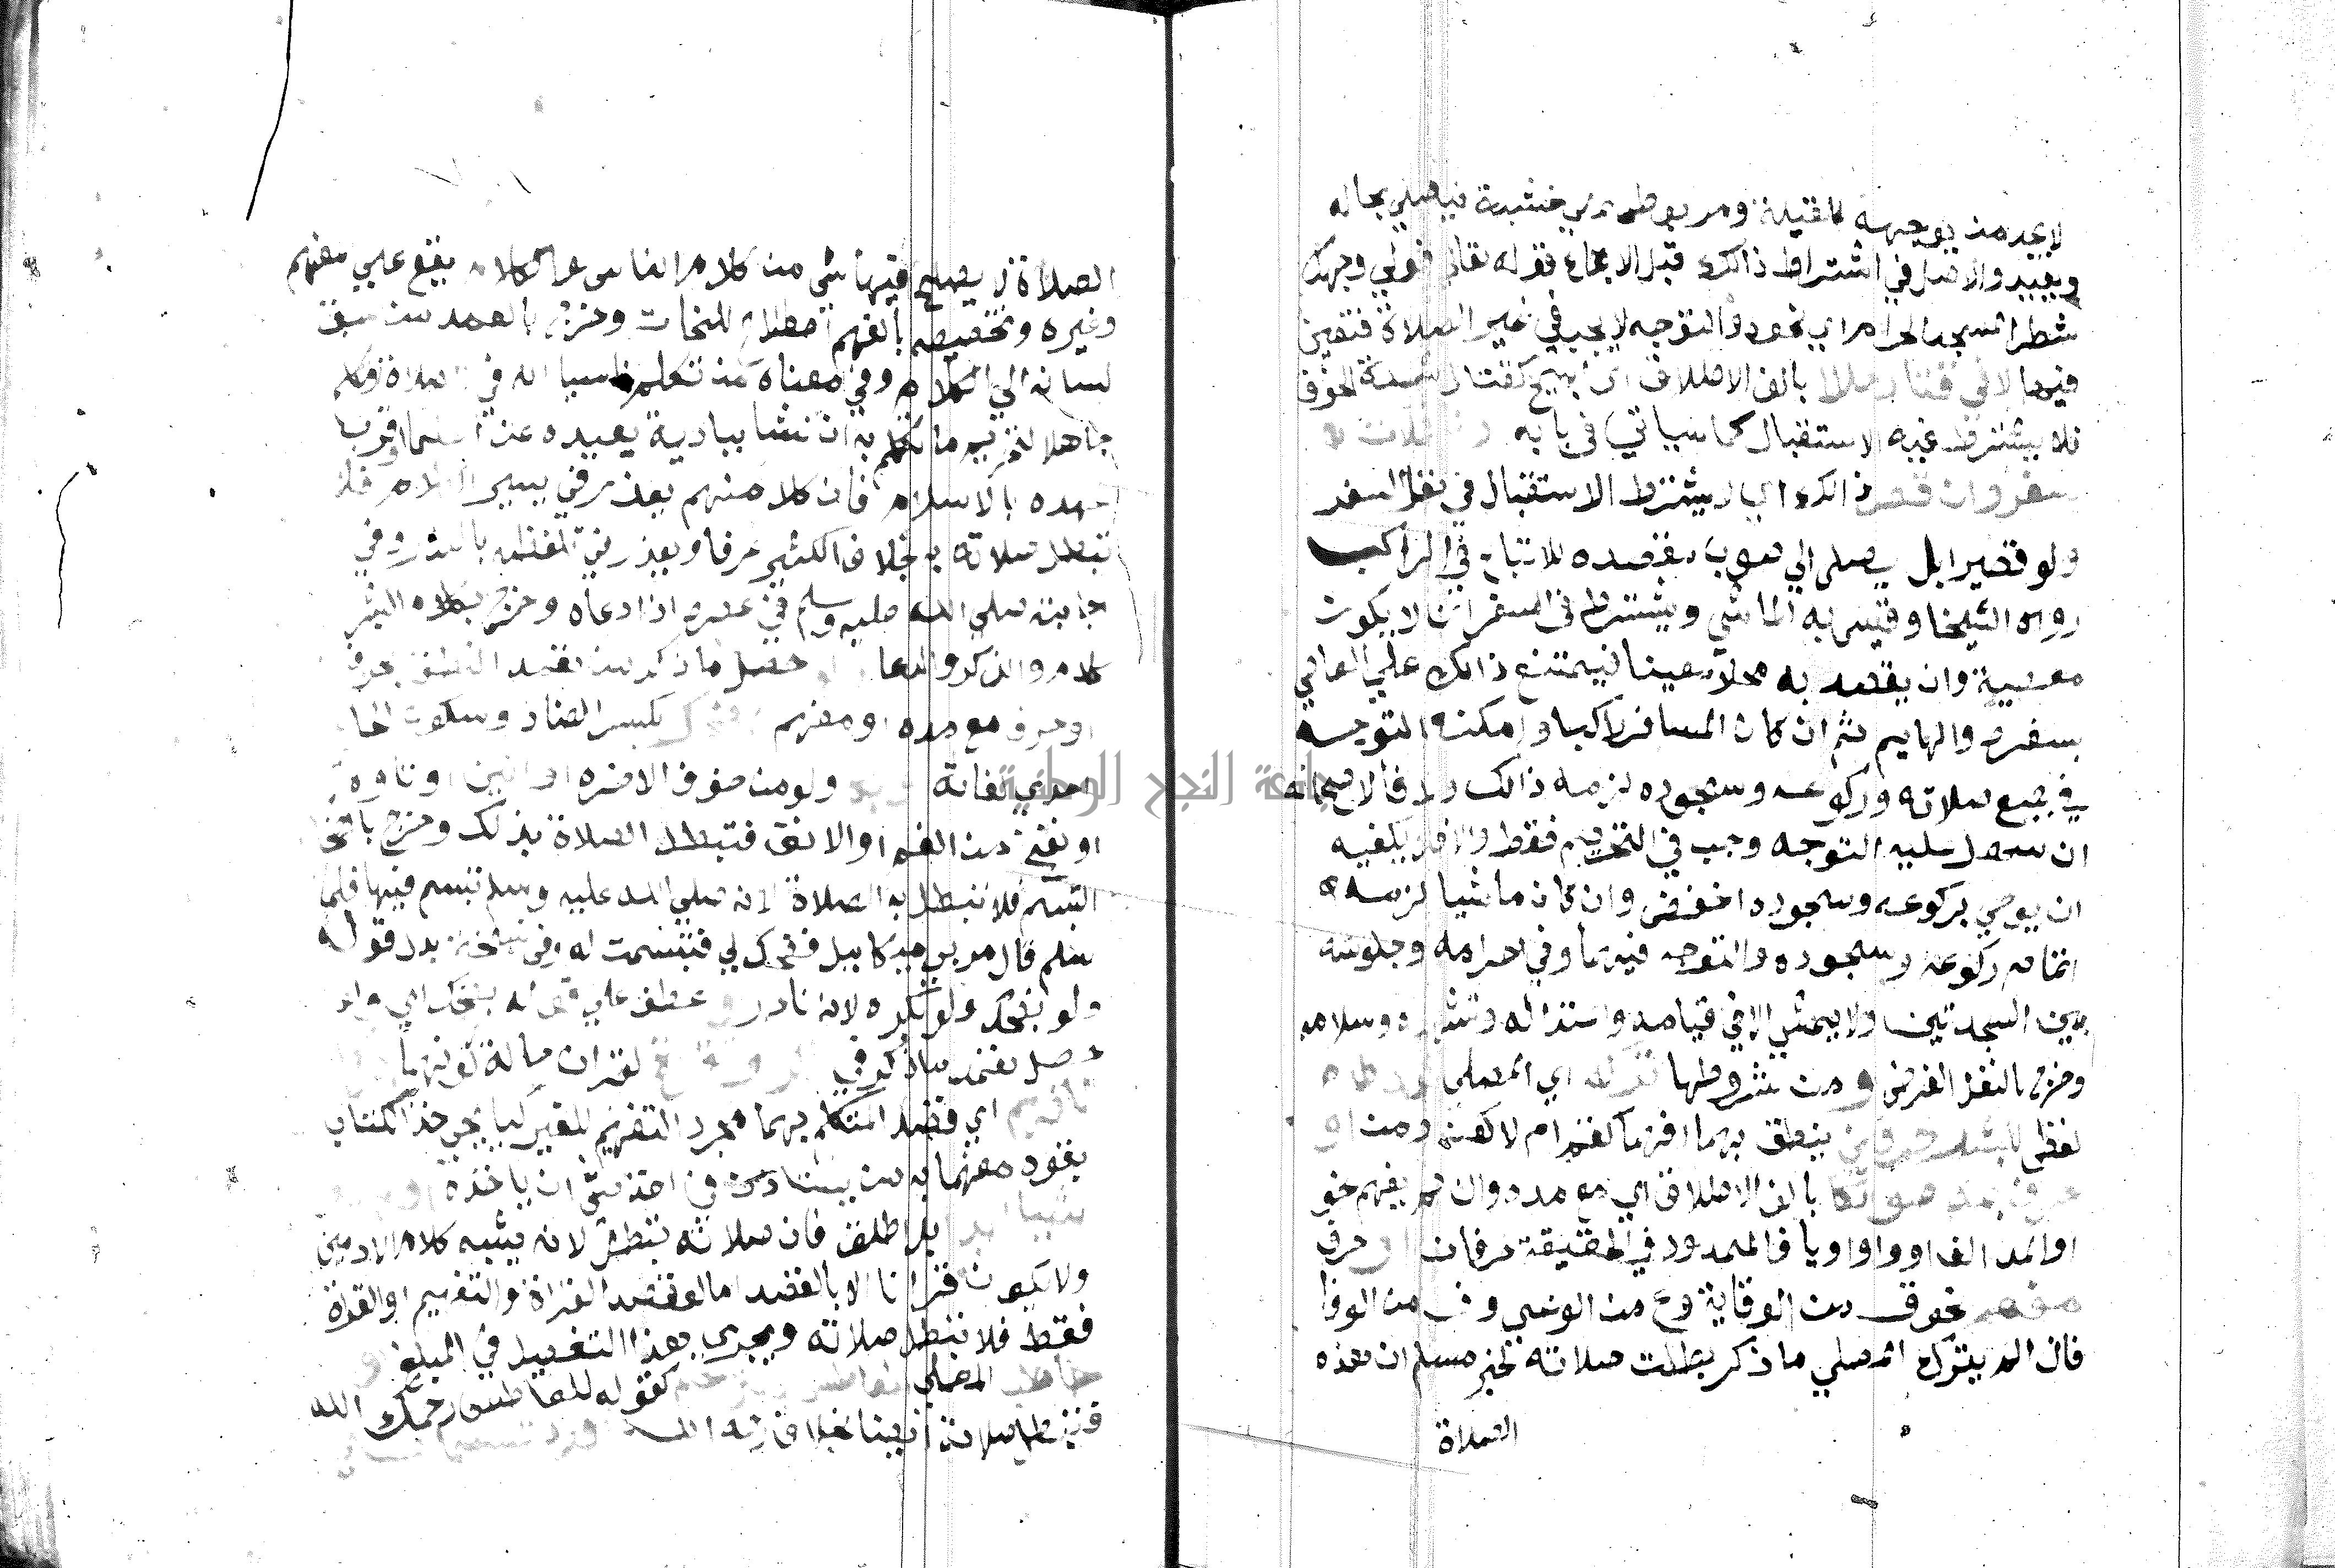 لايجد من يوجهه للقبلة ومربوط علي خشبة فيصلي بحاله
ويعيد والاصل في اشتراط ذالك قبل الاجماع قوله تعالي فولي وجهك
شطر المسجد الحرام اي نحوه والتوجه لا يجب في غير الصلاة فتعين
فيها لا في قتال حلالا بالف الاطلاق اي يبيح كقتال شدة الخوف
فلا يشترط فيه الاستقبال كما سياتي في بابه
سفر وان قصر ذالك اي لا يشترط الاستقبال في نفل السفر
ولو قصيرا بل يصلي الي صوب مقصده للاتباع في الراكب
رواه الشيخا وقيس به الماشي ويشترط في السفر ان لا يكون
معصية وان يقصد به محلا معينا فيمتنع ذالك علي العاصي
بسفره والهايم ثم ان كان المسافر راكبا وامكنه التوجه
في جميع صلاته وركوعه وسجوده لزمه ذالك والا فالاصح انه
ان سهل عليه التوجه وجب في التحريم فقط والا فلا يكفيه
ان يومي بركوعه وسجوده اخفض وان كان ماشيا لزمه
اتمام ركوعه وسجوده والتوجه فيهما وفي احرامه وجلوسه
بين السجدتين ولا يمشي الا في قيامه واعتداله وتشهده وسلامه
وخرج بالنفل الفرض ومن شروطها تركه اي المصلي
لفظ للبشر حرفين ينطق بهما افهما كقم ام لا كعن ومن او
حرف بمد صوتكا بالف الاطلاق اي مع مده وان لم يفهم نحو
او المد الف او واو او يا فالممدود في الحقيقة حرفان او حرف
مفهم نحو ق من الوقاية وع من الوعي وف من الوفا
فان لم يترك المصلي ما ذكر بطلت صلاته لخبر مسلم ان هذه
الصلاة
الصلاة لا يصلح فيها شي من كلام الناس والكلام يقع علي مفهم
وغيره وتخصيصه بالفهم اصطلاح للنحاة وخرج بالعمد من سبق
لسانه الي الكلام وفي معناه من تكلم ناسيا انه في الصلاة وكلم
جاهلا تحريم ما تكلم به ان نشا ببادية بعيده عن العلما او قرب
عهده بالاسلام فان كلا منهم يعذر في يسير الكلام فلا
تبطل صلاته به بخلاف الكثير عرفا ويعذر في التلفظ بالنذر وفي
اجابته صلي الله عليه وسلم في عصره اذا دعاه وخرج بكلام البشر
كلام والذكر والدعا حصل ما ذكر من تعمد النطق بحرف
او حرف مع مده او مفهم بكسر الضاد وسكون الحا
احدي لغاته ولو من خوف الاخره او انين او تاوه
او نفخ من الفم او الانف فتبطل الصلاة بذلك وخرج بالضحك
التبسم فلا تبطل به الصلاة لانه صلي الله عليه وسلم تبسم فيها فلما
سلم قال مر بي ميكاييل فضحك لي فتبسمت له وفي نسخة بدل قوله
ولو بضحك ولو بكره لانه نادر وعطف علي قوله بضحك اي ولو
حصل تعمد ما ذكر في لقران حالة كونها
اي قصد المتكلم بهما مجرد التفهيم للغير كيا يحي خذ الكتاب
بقوه مفهما به من يستاذن في اخذ شي ان ياخذه
بل اطلق فان صلاته تبطل لانه يشبه كلام الادميين
ولا يكون قرانا الا بالقصد اما لو قصد القراة والتفهيم او القراة
فقط فلا تبطل صلاته ويجري هذا التفصيل في المبلغ
خاطب المصلي كقوله للعاطس رحمك الله
فتبطل صلاته ايضا بخلاف رحمه الله
جامعة النجاح الوطنية